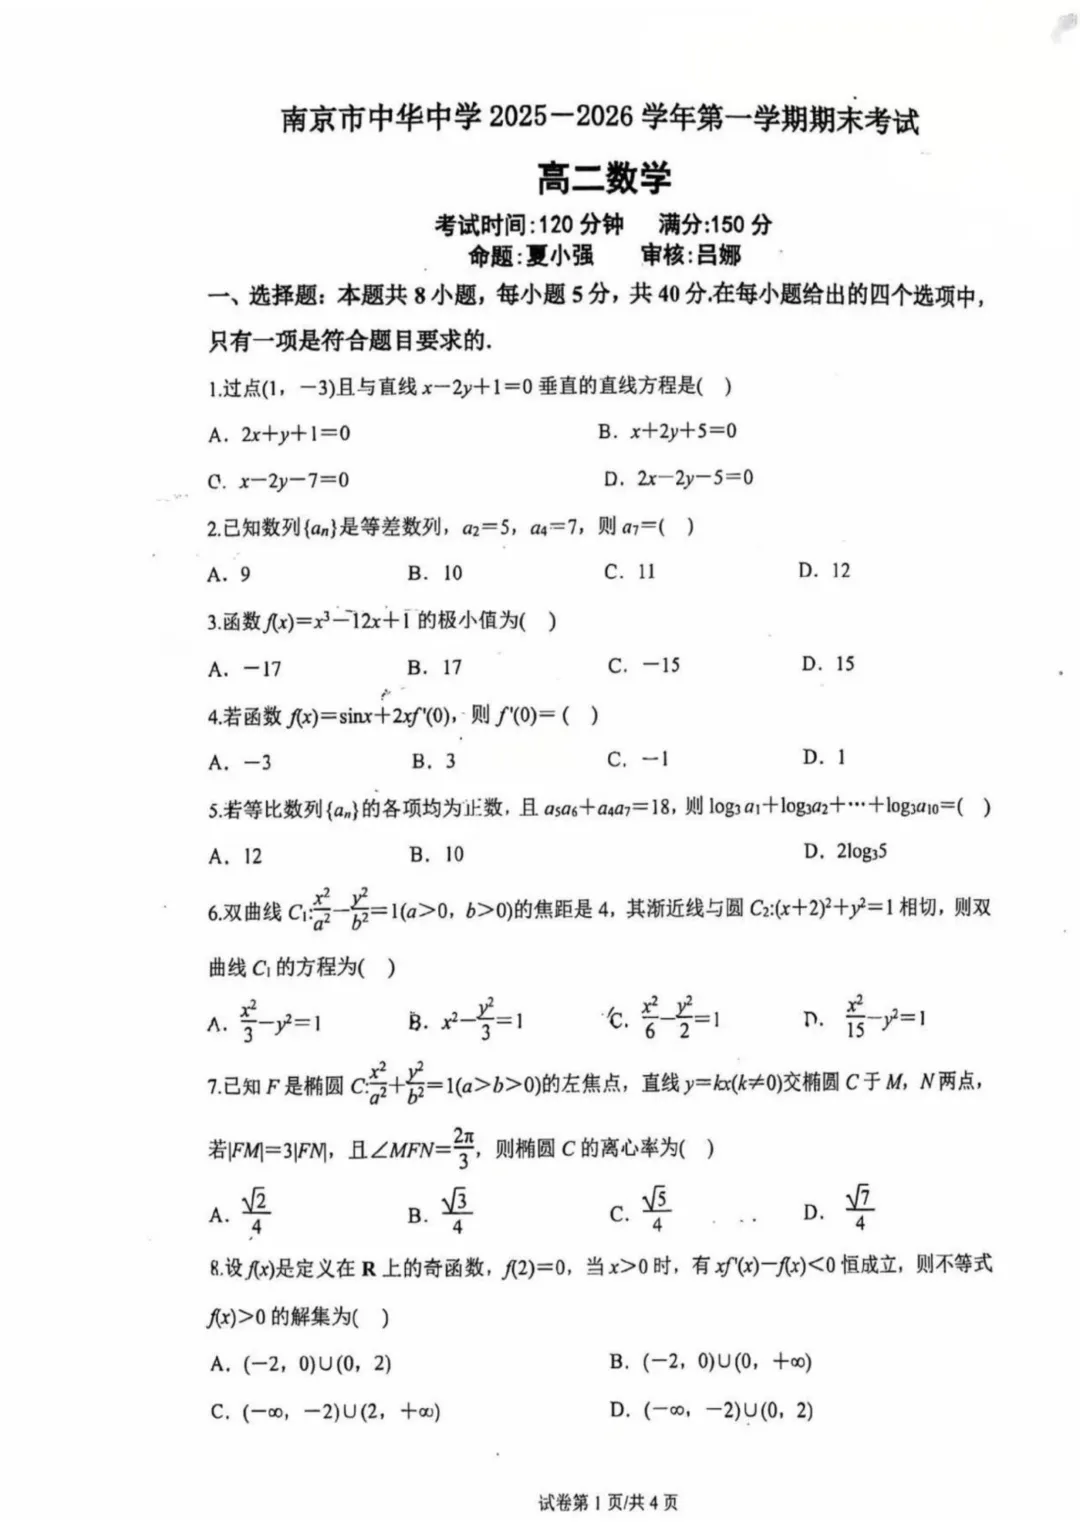 南京市中华中学 2025－2026 学年第一学期期末考试
高二数学
考试时间:120 分钟 满分:150 分
命题:夏小强 审核:吕娜
一、选择题：本题共 8 小题，每小题 5 分，共 40 分.在每小题给出的四个选项中，
只有一项是符合题目要求的.
1.过点(1，－3)且与直线 x－2y＋1＝0 垂直的直线方程是( )
A．2x＋y＋1＝0 B．x＋2y＋5＝0
C．x－2y－7＝0 D．2x－2y－5＝0
2.已知数列{aₙ}是等差数列，a₂＝5，a₄＝7，则 a₇＝( )
A．9 B．10 C．11 D．12
3.函数 f(x)＝x³－12x＋1 的极小值为( )
A．－17 B．17 C．－15 D．15
4.若函数 f(x)＝sinx＋2xf'(0)，则 f'(0)＝( )
A．－3 B．3 C．－1 D．1
5.若等比数列{aₙ}的各项均为正数，且 a₅a₆＋a₄a₇＝18，则 log₃a₁＋log₃a₂＋…＋log₃a₁₀＝( )
A．12 B．10 D．2log₃5
6.双曲线 C₁:x²/a²－y²/b²＝1(a＞0，b＞0)的焦距是 4，其渐近线与圆 C₂:(x＋2)²＋y²＝1 相切，则双
曲线 C₁ 的方程为( )
A．x²/3－y²＝1 B．x²－y²/3＝1 C．x²/6－y²/2＝1 D．x²/15－y²＝1
7.已知 F 是椭圆 C:x²/a²＋y²/b²＝1(a＞b＞0)的左焦点，直线 y＝kx(k≠0)交椭圆 C 于 M，N 两点，
若|FM|＝3|FN|，且∠MFN＝2π/3，则椭圆 C 的离心率为( )
A．√2/4 B．√3/4 C．√5/4 D．√7/4
8.设 f(x)是定义在 R 上的奇函数，f(2)＝0，当 x＞0 时，有 xf'(x)－f(x)＜0 恒成立，则不等式
f(x)＞0 的解集为( )
A．(－2，0)∪(0，2) B．(－2，0)∪(0，＋∞)
C．(－∞，－2)∪(2，＋∞) D．(－∞，－2)∪(0，2)
试卷第 1 页/共 4 页